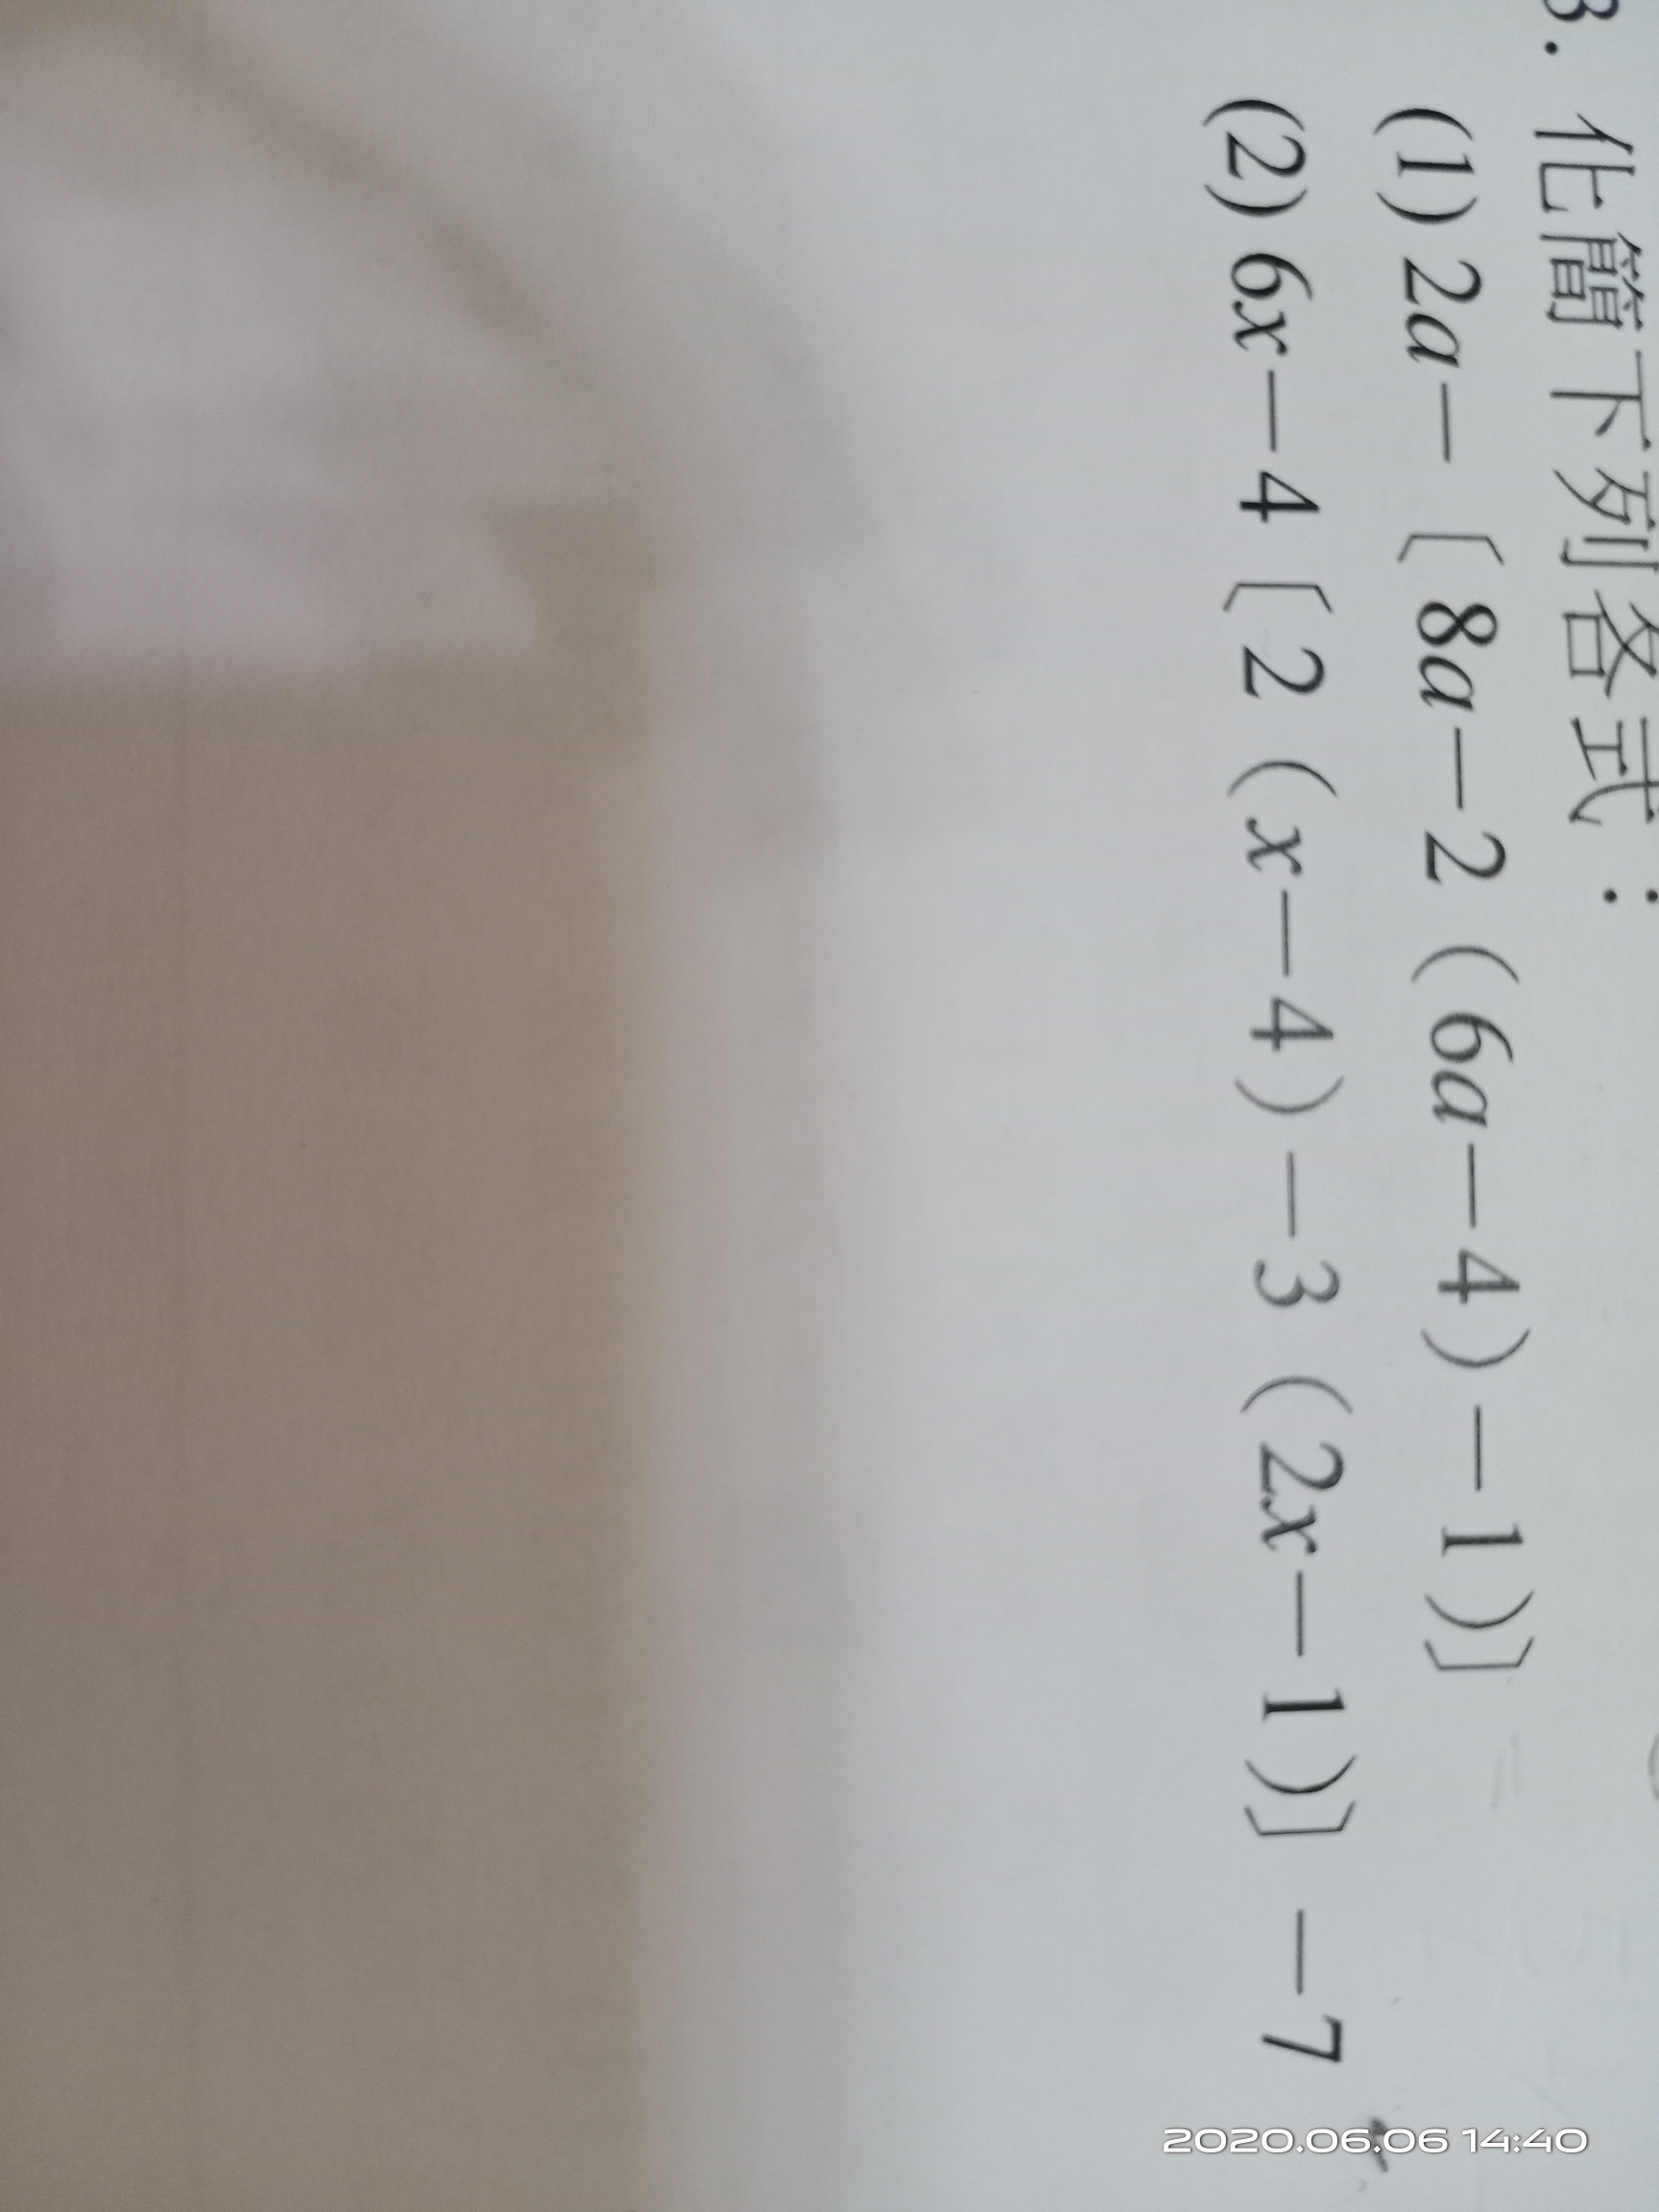 3. 化簡下列各式：
(1) 2a－〔8a－2（6a－4）－1)〕
(2) 6x－4〔2（x－4）－3（2x－1)〕－7
2020.06.06 14:40